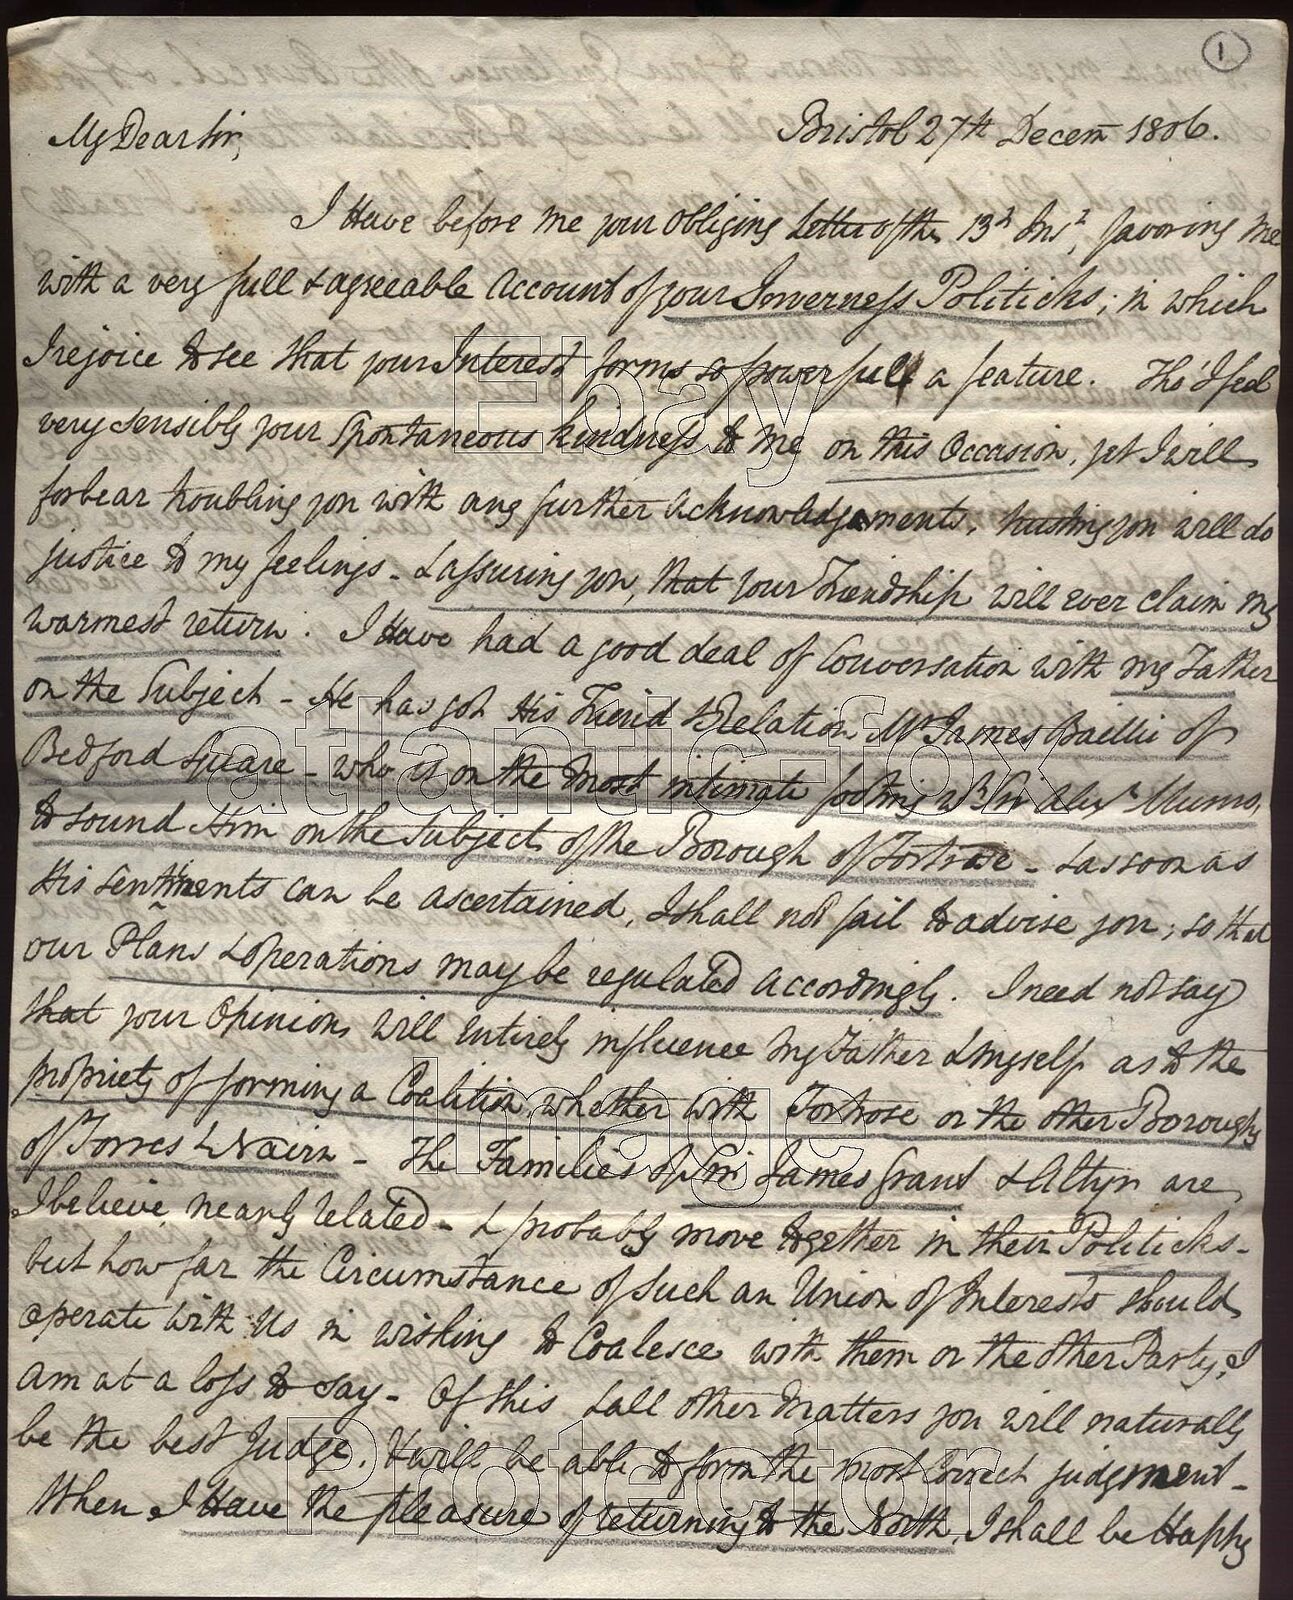 1
My Dear Sir,
Bristol 27th Decem 1806.
I Have before me your obliging Letter of the 13th Inst, favoring me
with a very full & agreeable account of your Inverness Politicks; in which
I rejoice to see that your Interest forms so powerfull a feature. Tho' I feel
very sensibly your spontaneous kindness to me on this Occasion, yet I will
forbear troubling you with any further acknowledgements, trusting you will do
justice to my feelings - & assuring you, that your Friendship will ever claim my
warmest return. I Have had a good deal of Conversation with my Father
on the Subject - He has got His Friend & Relation Mr James Baillie of
Bedford Square - who is on the most intimate footing wh Sir Alexr Munro,
to sound Him on the Subject of the Borough of Fortrose - & as soon as
His sentiments can be ascertained, I shall not fail to advise you; so that
our Plans & operations may be regulated accordingly. I need not say
that your Opinions will entirely influence my Father & myself as to the
propriety of forming a Coalition, whether with Fortrose or the other Boroughs
of Forres & Nairn - The Families of Sir James Grant & Altyr are,
I believe, nearly related - & probably move together in their Politicks -
but how far the Circumstance of such an Union of Interests should
operate with Us in wishing to Coalesce with them or the other Party, I
am at a loss to say - Of this & all other Matters you will naturally
be the best Judge, & will be able to form the most correct judgment -
When I Have the pleasure of returning to the North, I shall be Happy
Ebay
atlantic-fox
Image
Protector